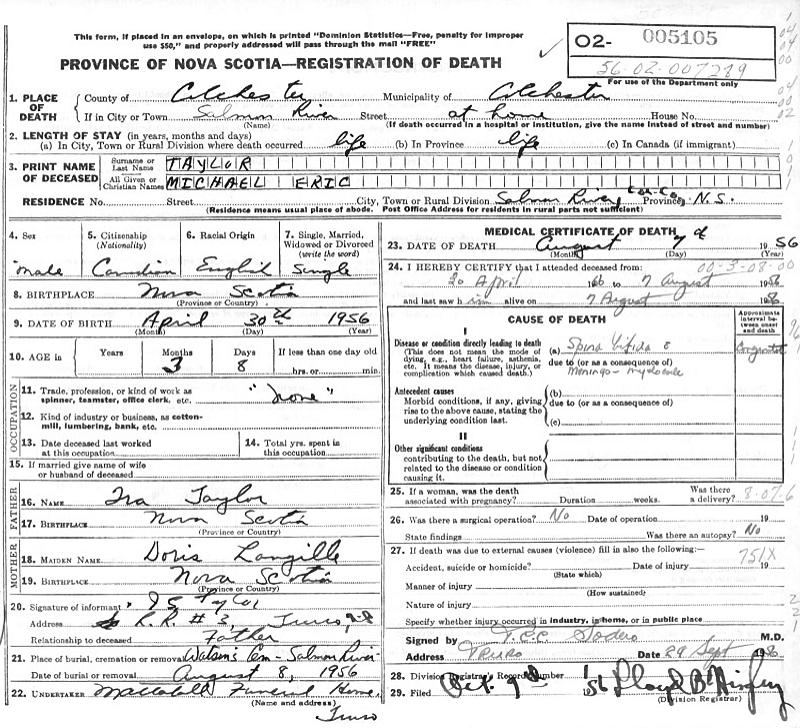 This form, if placed in an envelope, on which is printed "Dominion Statistics—Free, penalty for improper
use $50," and properly addressed will pass through the mail "FREE"
PROVINCE OF NOVA SCOTIA—REGISTRATION OF DEATH
02- 005105
56-02-007289
For use of the Department only
1. PLACE OF DEATH County of Colchester Municipality of Colchester
If in City or Town Salmon River Street at home House No.
(Name) (If death occurred in a hospital or institution, give the name instead of street and number)
2. LENGTH OF STAY (in years, months and days)
(a) In City, Town or Rural Division where death occurred life (b) In Province life (c) In Canada (if immigrant)
3. PRINT NAME OF DECEASED Surname or Last Name TAYLOR
All Given or Christian Names MICHAEL ERIC
RESIDENCE No. Street City, Town or Rural Division Salmon River, Col. Co. Province N.S.
(Residence means usual place of abode. Post Office Address for residents in rural parts not sufficient)
4. Sex
male
5. Citizenship
(Nationality)
Canadian
6. Racial Origin
English
7. Single, Married,
Widowed or Divorced
(write the word)
Single
8. BIRTHPLACE Nova Scotia
(Province or Country)
9. DATE OF BIRTH April 30th 1956
(Month) (Day) (Year)
10. AGE in Years Months Days If less than one day old
3 8 hrs. or min.
OCCUPATION
11. Trade, profession, or kind of work as
spinner, teamster, office clerk, etc. "none"
12. Kind of industry or business, as cotton-
mill, lumbering, bank, etc.
13. Date deceased last worked
at this occupation
14. Total yrs. spent in
this occupation
15. If married give name of wife
or husband of deceased
FATHER
16. NAME Ira Taylor
17. BIRTHPLACE Nova Scotia
(Province or Country)
MOTHER
18. MAIDEN NAME Doris Langille
19. BIRTHPLACE Nova Scotia
(Province or Country)
20. Signature of informant
Address R.R. # 3, Truro,
Relationship to deceased Father
21. Place of burial, cremation or removal Watson's Cem - Salmon River
Date of burial or removal August 8, 1956
22. UNDERTAKER Mattatall Funeral Home,
(Name and address)
Truro
MEDICAL CERTIFICATE OF DEATH
23. DATE OF DEATH August 7 1956
(Month) (Day) (Year)
24. I HEREBY CERTIFY that I attended deceased from: 00-3-08-00
20 April 1956 to 7 August 1956
and last saw him alive on 7 August 1956
CAUSE OF DEATH
Approximate
interval be-
tween onset
and death
I
Disease or condition directly leading to death
(This does not mean the mode of
dying, e.g., heart failure, asthenia,
etc. It means the disease, injury, or
complication which caused death.)
(a) Spina bifida &
due to (or as a consequence of)
Meningo-myelocele
Congenital
Antecedent causes
Morbid conditions, if any, giving
rise to the above cause, stating the
underlying condition last.
(b)
due to (or as a consequence of)
(c)
II
Other significant conditions
contributing to the death, but not
related to the disease or condition
causing it.
25. If a woman, was the death
associated with pregnancy? Duration weeks. Was there
a delivery? 8-07-6
26. Was there a surgical operation? No Date of operation 19
State findings Was there an autopsy? No
27. If death was due to external causes (violence) fill in also the following:—
751X
Accident, suicide or homicide? Date of injury 19
(State which)
Manner of injury
(How sustained)
Nature of injury
Specify whether injury occurred in industry, in home, or in public place
Signed by T.C.C. Sodero M.D.
Address TRURO Date 29 Sept 1956
28. Division Registrar's Record Number
29. Filed Oct. 9th 1956 Lloyd B
(Division Registrar)